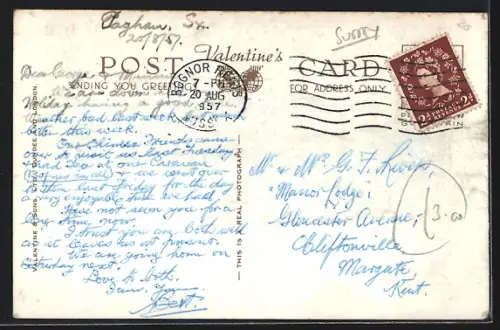 Pagham, Sx.
20/8/57.
SUSSEX
POST
Valentine's
CARD
SENDING YOU GREETINGS
FOR ADDRESS ONLY
BOGNOR REGIS
7-PM
20 AUG
1957
SUSSEX
2D 2D
Dear George &
having a good
weather had been
been this work.
Our Friends came
over & met us last Tuesday
& had tea in our Caravan
& we went over
to them last Friday for the day
a very enjoyable time we had.
Have not seen you for a
long time now.
I trust you are both well
as it leaves us at present.
We are going home on
Saturday next.
Love to both.
Bert.
VALENTINE & SONS, LTD., DUNDEE AND LONDON.
THIS IS A REAL PHOTOGRAPH
Mr & Mrs G. F.
"Manor Lodge,"
Gloucester Avenue,
Cliftonville,
Margate,
Kent.
£3.00